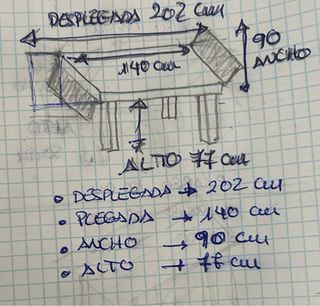 DESPLEGADA 202 cm
140 cm
90
ANCHO
ALTO 77 cm
• DESPLEGADA → 202 cm
• PLEGADA → 140 cm
• ANCHO → 90 cm
• ALTO → 78 cm